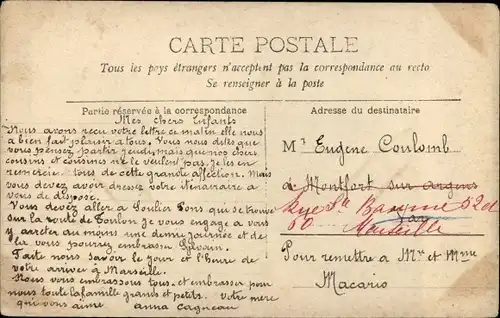 CARTE POSTALE
Tous les pays étrangers n'acceptent pas la correspondance au recto
Se renseigner à la poste
Partie réservée à la correspondance
Mes chers Enfants
Nous avons reçu votre lettre ce matin elle nous
a bien fait plaisir a tous. Vous nous dites que
vous pensez partir jeudi, mais que nos chers
cousins et cousines ne le veulent pas, je les en
remercie tous de cette grande affection. Mais
vous devez avoir dresser votre itinairaire a
vous de dispose.
Vous devez aller a Soulier Pons qui se trouve
sur la route de Toulon je vous engage a vous
y arreter au moins une demie journée et de
la vous pourrez embrasse
Faite nous savoir le jour et l'heure de
votre arriver à Marseille.
Nous vous embrassons tous et embrasser pour
nous toute la famille grands et petits. votre mere
qui vous aime anna Cagneau
Adresse du destinataire
Mr Eugene Coulomb
a Montfort sur argens
Rue Ste Baume 52 d
50 Var
Marseille
Pour remettre a Mr et Mme
Macario